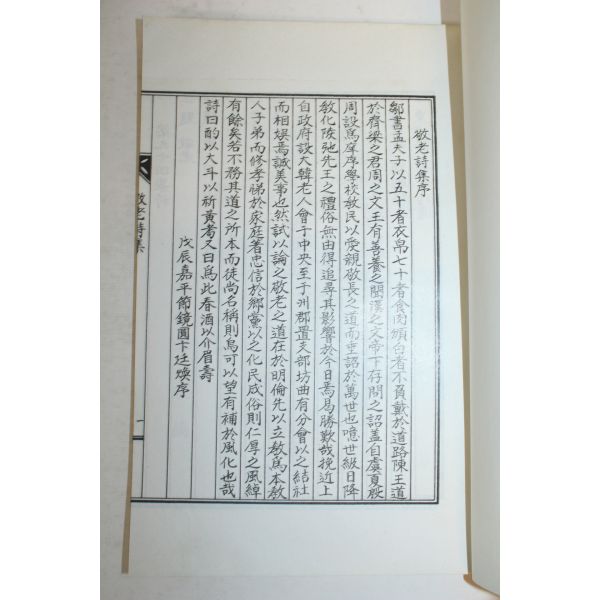 敬老詩集序
鄒書孟夫子以五十者衣帛七十者食肉頒白者不負戴於道路陳王道
於齊梁之君周之文王有善養之聞漢之文帝下存問之詔盖自虞夏殷
周設爲庠序學校敎民以愛親敬長之道而垂詔於萬世也噫世級日降
敎化陵弛先王之禮俗無由得追尋其影響於今日焉曷勝歎哉挽近上
自政府設大韓老人會于中央至于州郡置支部坊曲有分會以之結社
而相娛焉誠美事也然試以論之敬老之道在於明倫先以立敎爲本敎
人子弟而修孝悌於家庭著忠信於鄕黨以之化民成俗則仁厚之風綽
有餘矣若不務其道之所本而徒尙名稱則烏可以望有補於風化也哉
詩曰酌以大斗以祈黃耈又曰爲此春酒以介眉壽
戊辰嘉平節鏡圓卞廷煥序
敬老詩集
一